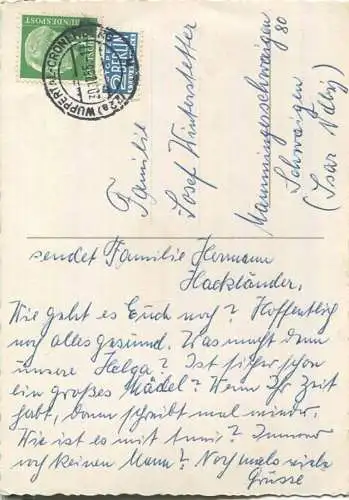 DEUTSCHE BUNDESPOST
NOTOPFER
2 BERLIN
STEUERMARKE
(22a) WUPPERTAL-CRONENBERG
Familie
Josef Wintersteller
Mammingerschwaigen
80
Schwaigen
(Isar Ndby)
sendet Familie Hermann
Hackländer.
Wie geht es Euch noch? Hoffentlich
noch alles gesund. Was macht denn
unsere Helga? Ist sicher schon
ein großes Mädel? Wenn Ihr Zeit
habt, dann schreibt mal wieder.
Wie ist es mit Anni? Immer
noch keinen Mann? Nochmals viele
Grüsse